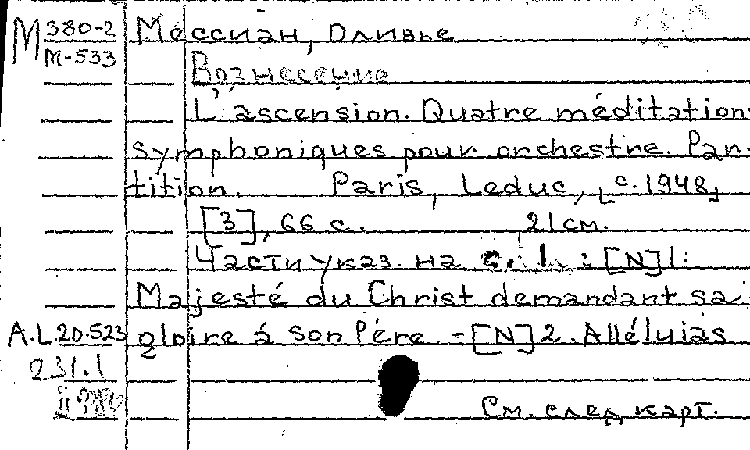 М 380-2
М-533
Мессиан, Оливье
Вознесение
L'ascension. Quatre méditation
symphoniques pour orchestre. Par-
tition. Paris, Leduc, [c. 1948]
[3], 66 с. 21 см.
Части указ. на с. 1. : [N] 1:
Majesté du Christ demandant sa
A.L. 20.523 gloire à son Père. - [N] 2. Alléluias
231.1
См. след. карт.